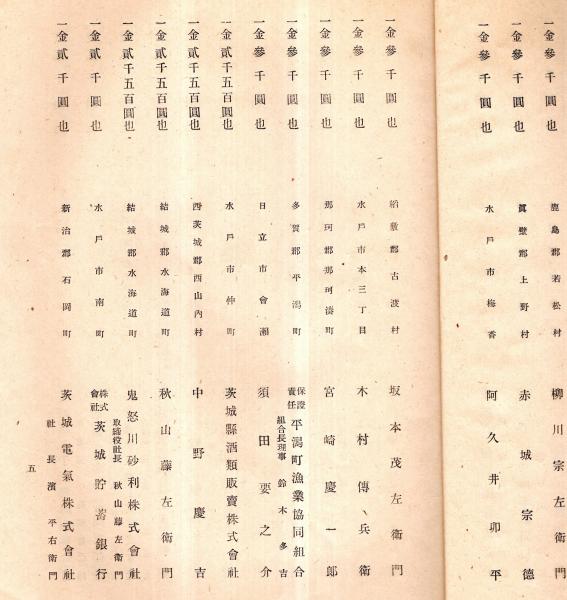 一金參千圓也 鹿島郡若松村 柳川宗左衛門
一金參千圓也 眞壁郡上野村 赤城宗德
一金參千圓也 水戶市梅香 阿久井卯平
一金參千圓也 稻敷郡古渡村 坂本茂左衛門
一金參千圓也 水戶市本三丁目 木村傳兵衛
一金參千圓也 那珂郡那珂湊町 宮崎慶一郎
一金參千圓也 多賀郡平潟町 保證責任平潟町漁業協同組合
組合長理事 鈴木多吉
一金參千圓也 日立市會瀨 須田要之介
一金貳千五百圓也 水戶市仲町 茨城縣酒類販賣株式會社
一金貳千五百圓也 西茨城郡西山內村 中野慶吉
一金貳千五百圓也 結城郡水海道町 秋山藤左衛門
一金貳千五百圓也 結城郡水海道町 鬼怒川砂利株式會社
取締役社長 秋山藤左衛門
一金貳千圓也 水戶市南町 株式會社茨城貯蓄銀行
一金貳千圓也 新治郡石岡町 茨城電氣株式會社
社長 濱平右衛門
五